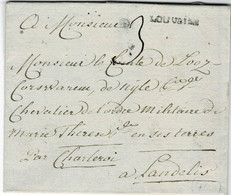 A Monsieur
LOUVAIN
3
Monsieur le Comte de Looz
Corswarem de Nyle
Chevalier de l'ordre Militaire de
Marie Therese en ses terres
Par Charleroi
a Landelis